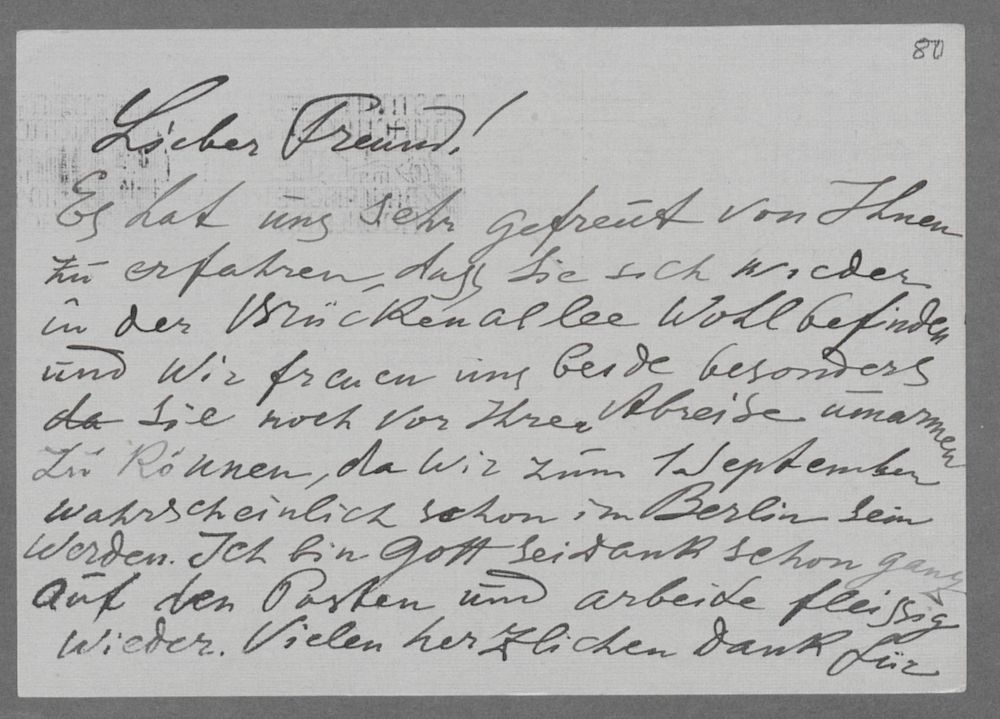 80
Lieber Freund!
Es hat uns sehr gefreut von Ihnen
zu erfahren, dass Sie sich wieder
in der Brückenallee Wohl befinden
und Wir freuen uns beide besonders
da Sie noch vor Ihrer Abreise umarmen
zu Können, da Wir zum 1 September
wahrscheinlich schon im Berlin sein
Werden. Ich bin Gott sei Dank schon ganz
Auf den Posten und arbeide fleissig
wieder. Vielen herzlichen Dank für